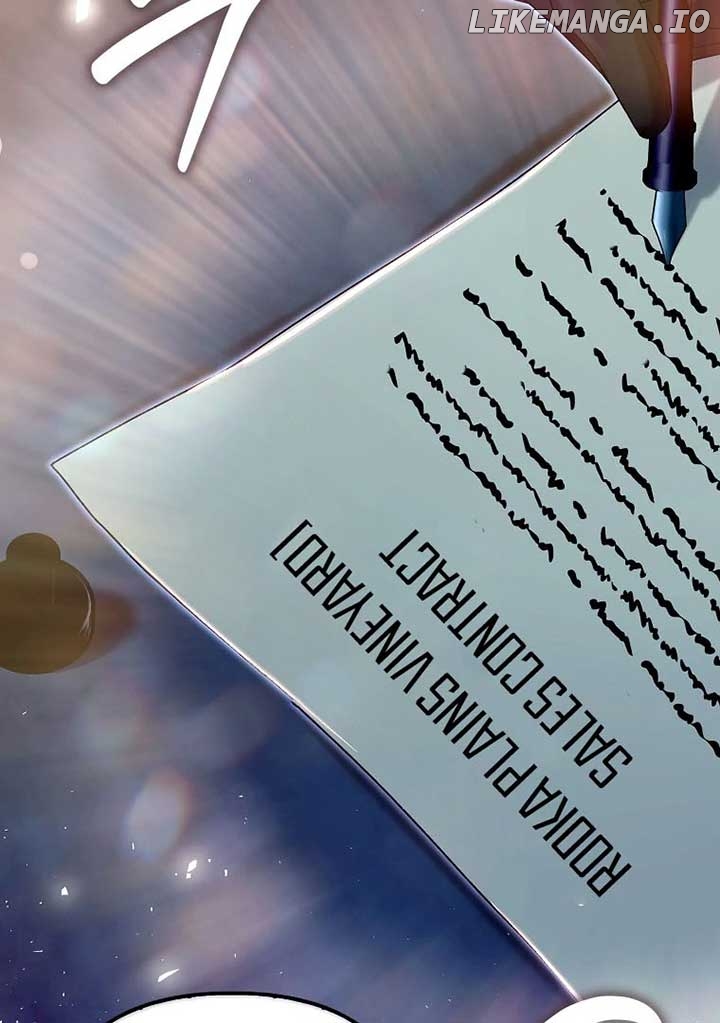 LIKEMANGA.IO
RODKA PLAINS VINEYARD]
SALES CONTRACT